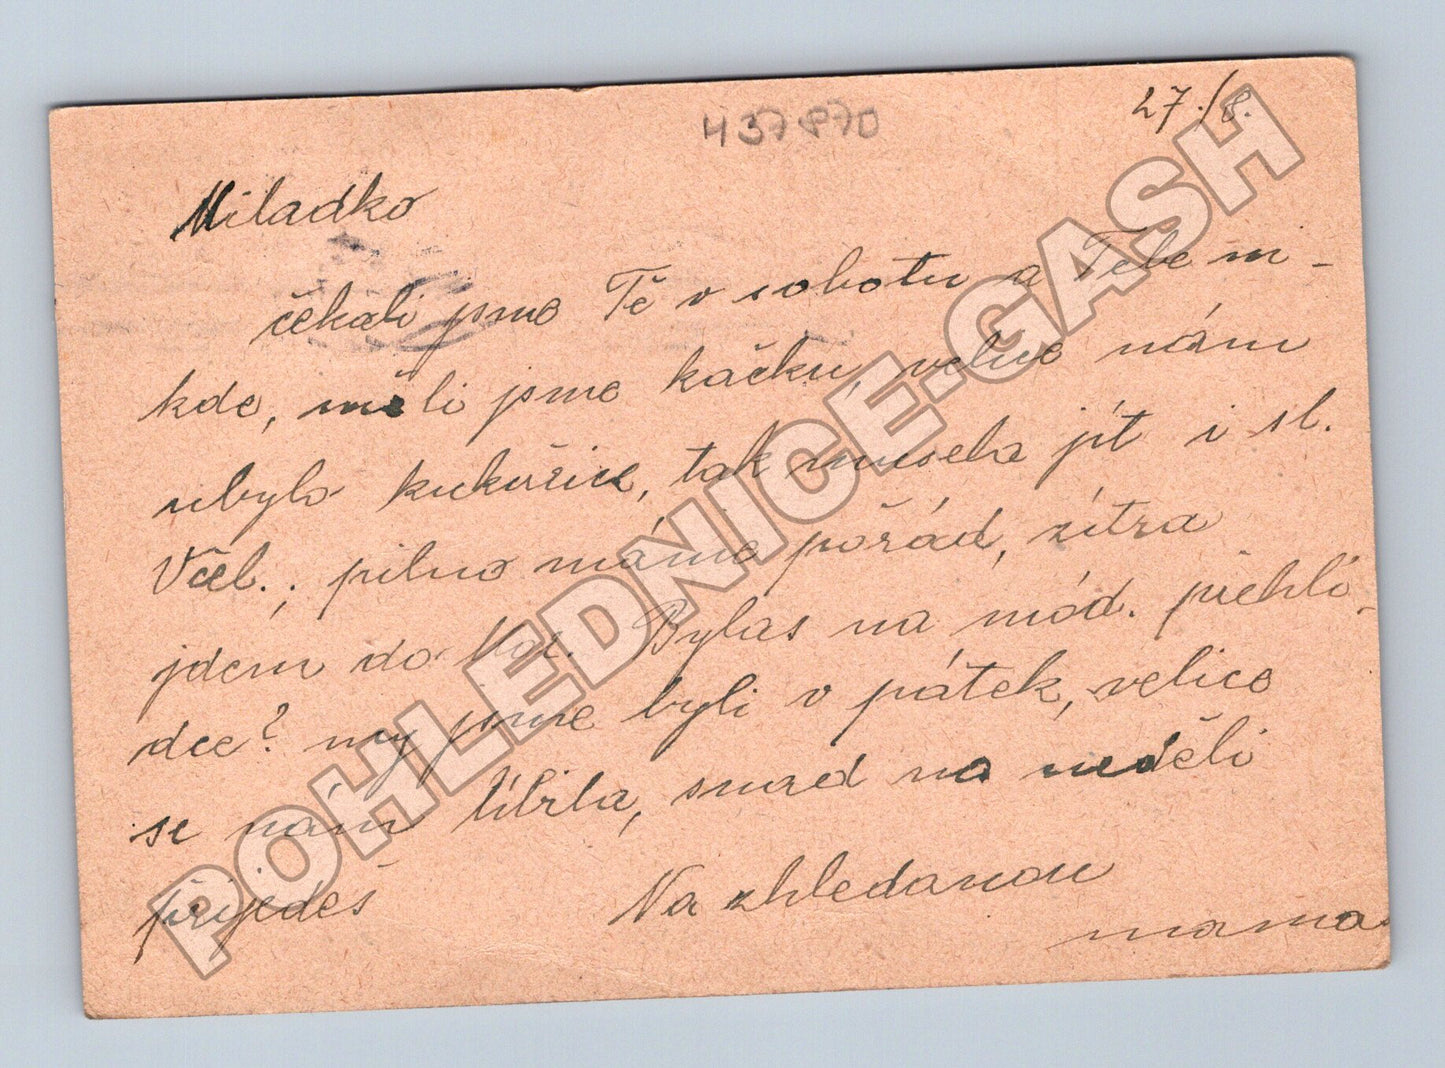 437870
27./8.
Miladko
čekali jsme Tě v sobotu a Tebe ni-
kde, měli jsme kačku, velice nám
ubylo kukuřice, tak musela jít i sl.
Včel.; pilno máme pořád, zítra
jdem do Bylas na mód. přehlí-
dce? my jsme byli v pátek, velice
se nám líbila, snad na neděli
přijedeš Na shledanou
mama
POHLEDNICE.GASH